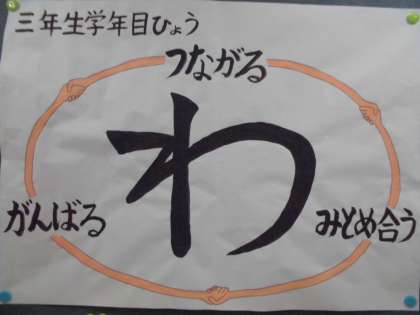 三年生学年目ひょう
つながる
わ
がんばる
みとめ合う